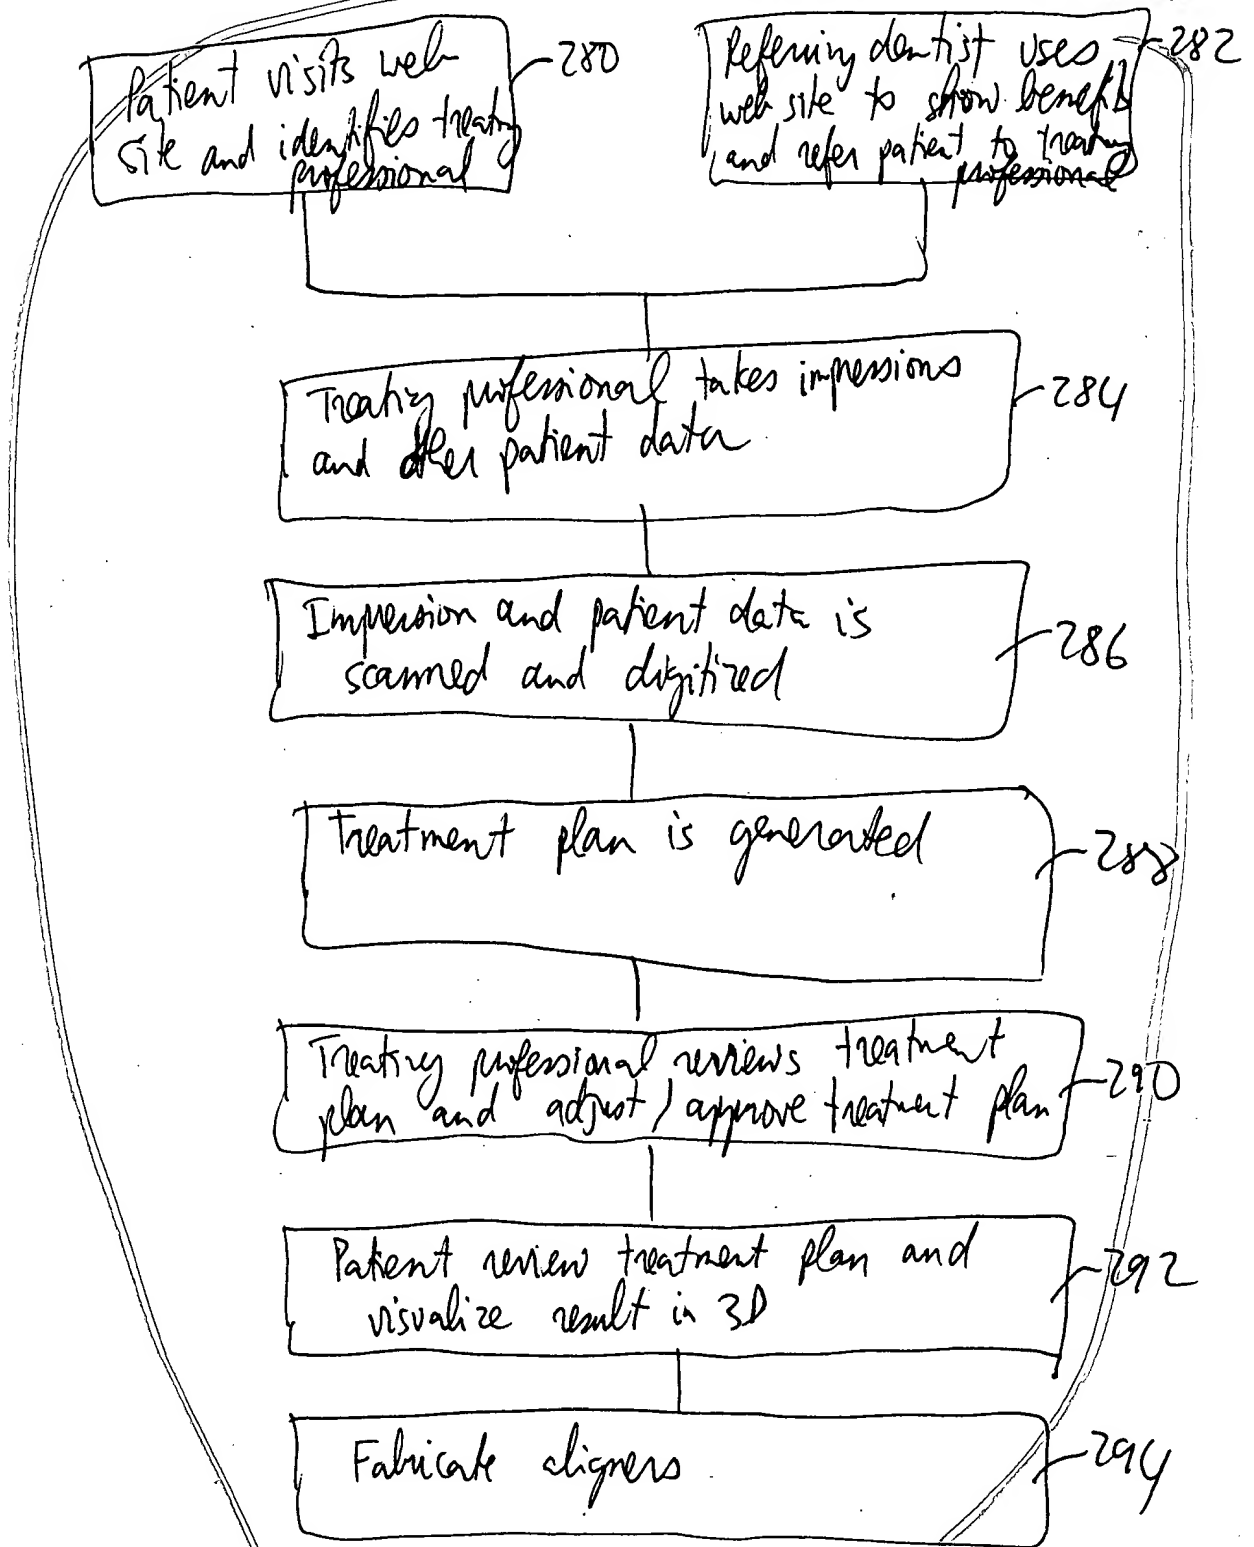 Patient visits web
site and identifies treating
professional
280
Referring dentist uses
web site to show benefits
and refer patient to treating
professional
282
Treating professional takes impressions
and other patient data
284
Impression and patient data is
scanned and digitized
286
Treatment plan is generated
288
Treating professional reviews treatment
plan and adjust / approve treatment plan
290
Patient review treatment plan and
visualize result in 3D
292
Fabricate aligners
294